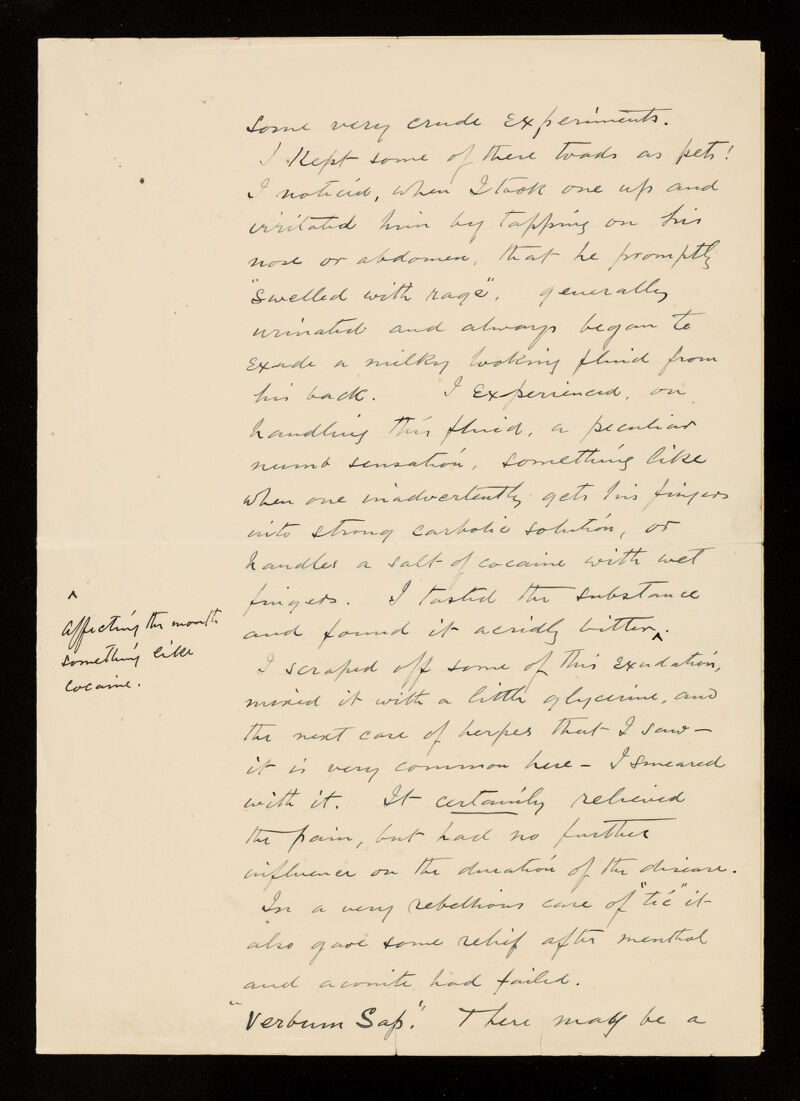 some very crude experiments.
I kept some of these toads as pets!
I noticed, when I took one up and
irritated him by tapping on his
nose or abdomen, that he promptly
"swelled with rage", generally
urinated and always began to
exude a milky looking fluid from
his back. I experienced, on
handling this fluid, a peculiar
numb sensation, something like
when one inadvertently gets his fingers
into strong carbolic solution, or
handles a salt of cocaine with wet
fingers. I tasted the substance
and found it acridly bitter ^.
^
affecting the mouth
something like
cocaine.
I scraped off some of this exudation,
mixed it with a little glycerine, and
the next case of herpes that I saw –
it is very common here – I smeared
with it. It certainly relieved
the pain, but had no further
influence on the duration of the disease.
In a very rebellious case of "tic" it
also gave some relief after menthol
and aconite had failed.
"Verbum Sap." There may be a